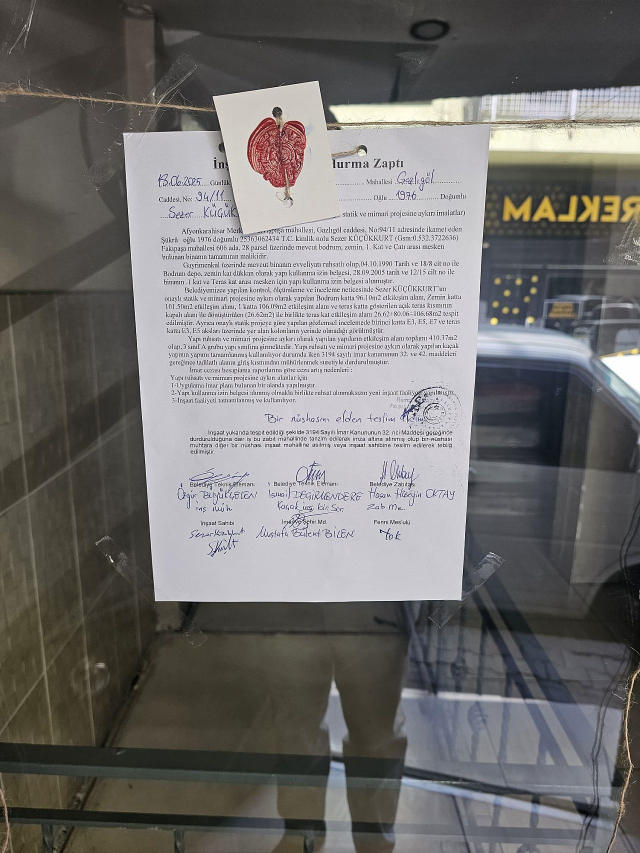 REKLAM
durma Zaptı
13.06.2025 Günlük Mahallesi Gazlıgöl
Caddesi, No: 94/11 Oğlu 1976 Doğumlu
Sezer statik ve mimari projesine aykırı imalatlar)
Afyonkarahisar mahallesi, Gazlıgöl caddesi, No:94/11 adresinde ikamet eden
Şükrü oğlu 1976 doğumlu 25363062434 T.C. kimlik nolu Sezer KÜÇÜKKURT (Gsm:0.532.3722636)
Fakıpaşa mahallesi 606 ada, 28 parsel üzerinde mevcut bodrum, zemin, 1. Kat ve Çatı arası mesken
bulunan binanın tamamının malikidir.
Gayrimenkul üzerinde mevcut binanın evveliyatı ruhsatlı olup,04.10.1990 Tarih ve 18/8 cilt no ile
Bodrum depo, zemin kat dükkan olarak yapı kullanma izin belgesi, 28.09.2005 tarih ve 12/15 cilt no ile
binanın . 1 kat ve Teras kat arası mesken için yapı kullanma izin belgesi alınmıştır.
Belediyemizce yapılan kontrol, ölçümleme ve inceleme neticesinde Sezer KÜÇÜKKURT'un
onaylı statik ve mimari projesine aykırı olarak yapılan Bodrum katta 96.10m2 etkileşim alanı, Zemin kattı
101.50m2 etkileşim alanı, 1 katta 106.09m2 etkileşim alanı ve teras katta gösterilen açık teras kısmının
kapalı alan ile dönüştüren (26.62m2) ile birlikte teras kat etkileşim alanı 26.62+80.06=106.68m2 tespit
edilmiştir. Ayrıca onaylı statik projeye göre yapılan gözlemsel incelemede birinci katta E3, E5, E7 ve teras
katta E3, E5 aksları üzerinde yer alan kolonların yerinde olmadığı görülmüştür.
Yapı ruhsatı ve mimari projesine aykırı olarak yapılan yapının etkileşim alanı toplamı 410.37m2
olup,3 sınıf A grubu yapı sınıfına girmektedir. Yapı ruhsatı ve mimari projesine aykırı olarak yapılan kaçak
yapının yapımı tamamlanmış kullanılıyor durumda iken 3194 sayılı imar kanununun 32. ve 42. maddeleri
gereğince tadilatlı alanın giriş kısmından mühürlenmek suretiyle durdurulmuştur.
İmar cezası hesaplama raporlarına göre ceza artış nedenleri ;
Yapı ruhsatı ve mimari projesine aykırı alanlar için
1-Uygulama imar planı bulunan bir alanda yapılmıştır.
2-Yapı kullanma izin belgesi alınmış olmakla birlikte ruhsat alınmaksızın yeni inşaat faaliyeti
3-İnşaat faaliyeti tamamlanmış ve kullanılıyor.
Bir nüshasını elden teslim
İnşaat yukarıda tespit edildiği şekilde 3194 Sayılı İmar Kanununun 32. nci Maddesi gereğince
durdurulduğuna dair iş bu zabıt mahallinde tanzim edilerek imza altına alınmış olup bir nüshası
muhtara diğer bir nüshası inşaat mahalline asılmış veya inşaat sahibine teslim edilerek tebliğ
edilmiştir.
Belediye Teknik Elemanı Belediye Teknik Elemanı Belediye Zabıtası
Özgür İsmail DEĞİRMENDERE Hasan Hüseyin OKTAY
inş. müh. Zab. Me.
İnşaat Sahibi Şefi/ Md. Fenni Mes'ulü
Mustafa Bülent BİLEN Yok